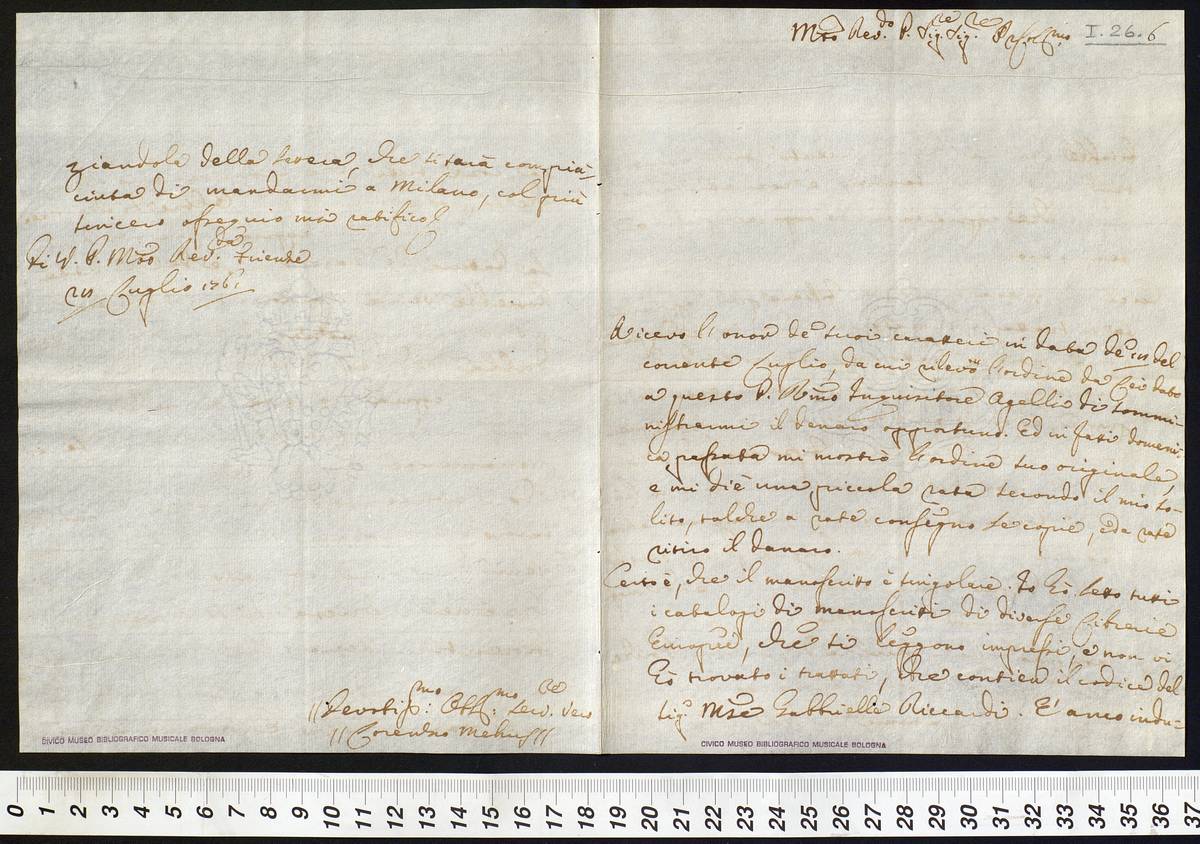 I. 26. 6
Mto Rev.do P. Sig.re Sig.re
Ricevo l'onor de suoi caratteri in data de 21 del
corrente Luglio, da cui rilevo l'ordine da Lei dato
a questo P. Rmo Inquisitore Agelli di sommi-
nistrarmi il danaro opportuno. Ed in fatti domeni-
ca passata mi mostrò l'ordine suo originale,
e mi diè una piccola rata secondo il mio so-
lito, talche a rate consegno le copie, e a rate
ritiro il danaro.
Certo è, che il manoscritto è singolare. Io hò letto tutti
i cataloghi di manoscritti di diverse Librerie
Europee, che si leggono impressi, e non vi
hò trovato i trattati, che contien il codice del
Sig.r Gabbriello Riccardi. E' anco indu-
CIVICO MUSEO BIBLIOGRAFICO MUSICALE BOLOGNA
ziandola della che si sarà compia-
ciuta di mandarmi a Milano, col più
sincero ossequio mi ratifico
Di V. P. Mto Rev.da Firenze
Luglio 1761
Devotiss.mo Obb.mo Serv. Vero
Lorenzo Mehus
CIVICO MUSEO BIBLIOGRAFICO MUSICALE BOLOGNA
0 1 2 3 4 5 6 7 8 9 10 11 12 13 14 15 16 17 18 19 20 21 22 23 24 25 26 27 28 29 30 31 32 33 34 35 36 37